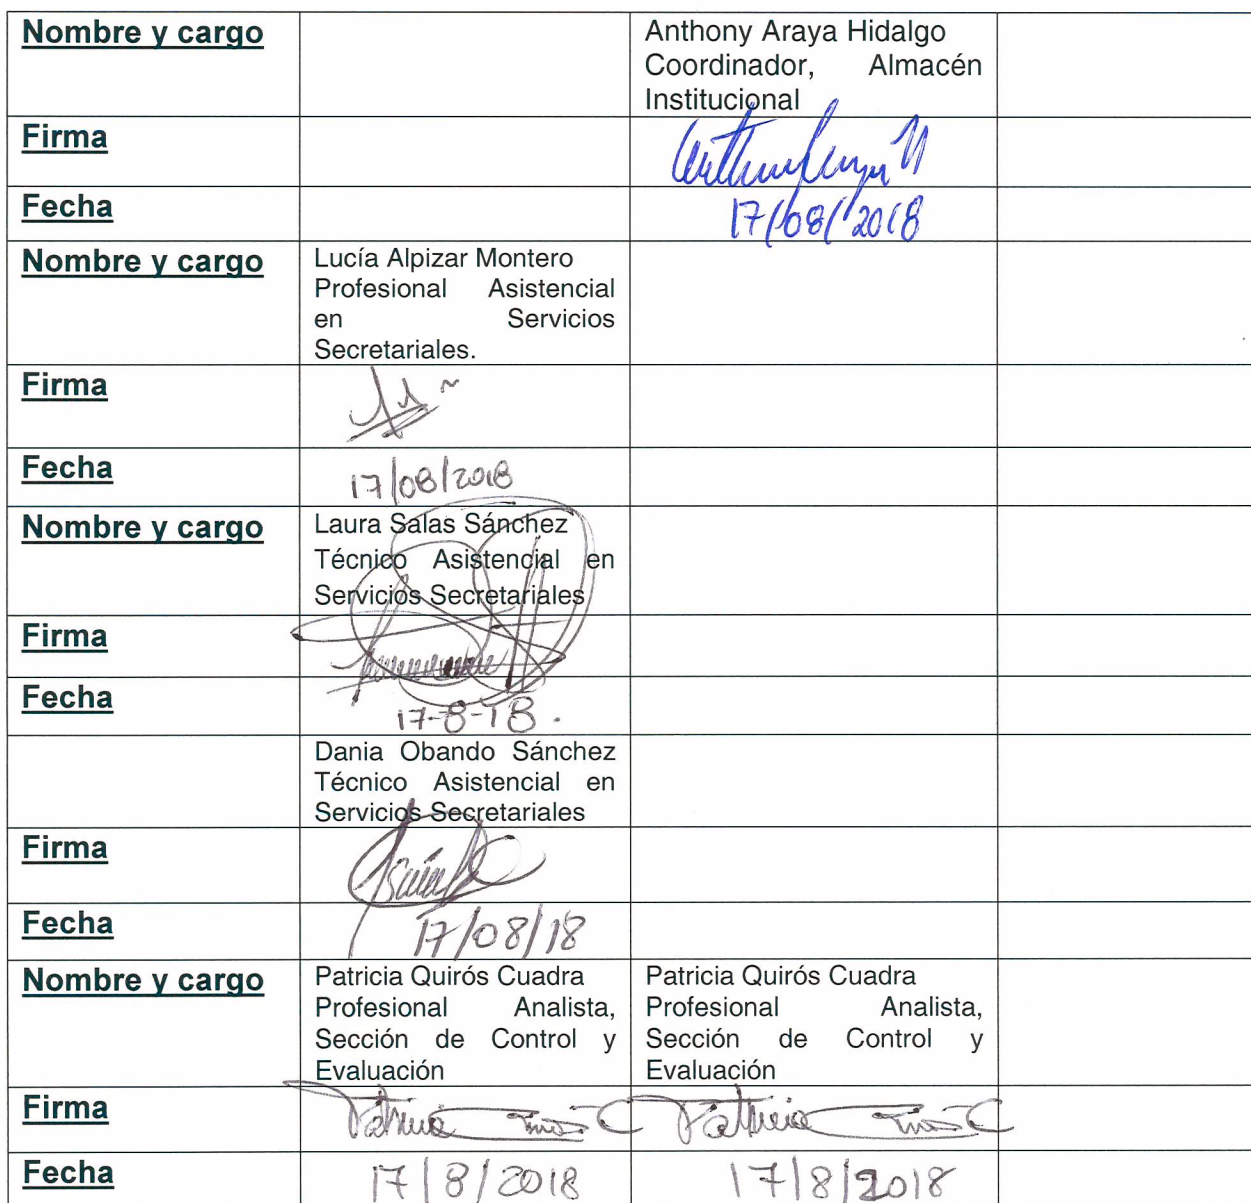 Nombre y cargo
Anthony Araya Hidalgo
Coordinador, Almacén
Institucional
Firma
Fecha
17/08/2018
Nombre y cargo
Lucía Alpizar Montero
Profesional Asistencial
en Servicios
Secretariales.
Firma
Fecha
17/08/2018
Nombre y cargo
Laura Salas Sánchez
Técnico Asistencial en
Servicios Secretariales
Firma
Fecha
17-8-18.
Dania Obando Sánchez
Técnico Asistencial en
Servicios Secretariales
Firma
Fecha
17/08/18
Nombre y cargo
Patricia Quirós Cuadra
Profesional Analista,
Sección de Control y
Evaluación
Patricia Quirós Cuadra
Profesional Analista,
Sección de Control y
Evaluación
Firma
Patricia
Patricia
Fecha
17/8/2018
17/8/2018